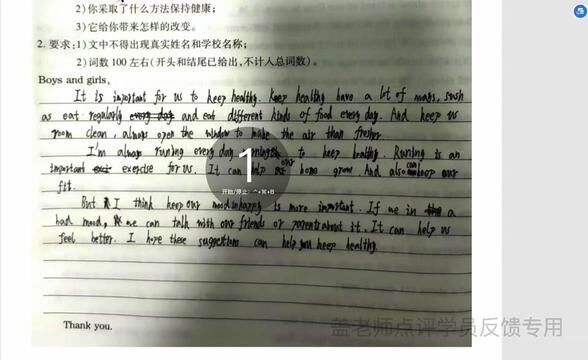 2)你采取了什么方法保持健康;
3)它给你带来怎样的改变。
2. 要求:1)文中不得出现真实姓名和学校名称;
2)词数 100 左右(开头和结尾已给出,不计入总词数)。
Boys and girls,
It is important for us to keep healthy. Keep healthy have a lot of ways, sush
as eat regularly every day and eat different kinds of food every day. And keep us
room clean, always open the window to make the air than fresher
I'm always runing every day morning to keep healthy. Runing is an
important exercise for us. It can help our bone grow And also can keep our
fit.
But I think keep our mood in happy is more important. If we in a
bad mood, we can talk with our friends or parents about it. It can help us
feel better. I hope these suggestions can help you keep healthy
Thank you.
1
开始/停止: ^+⌘+B
盖老师点评学员反馈专用